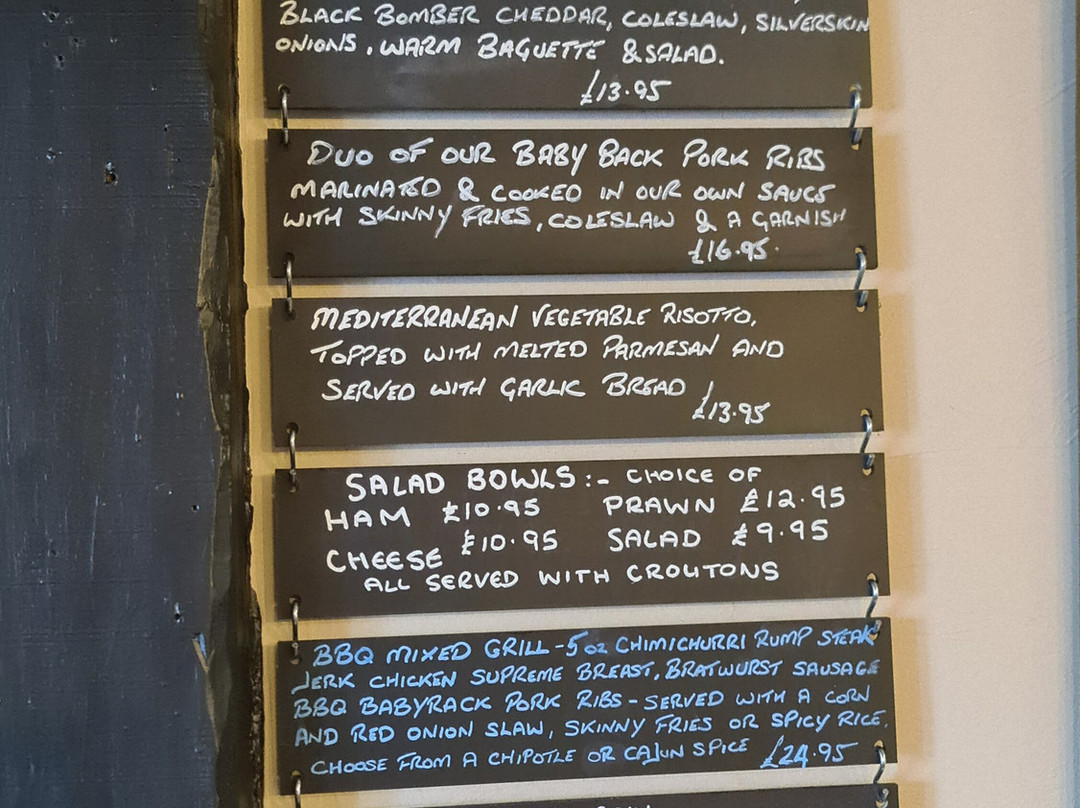 BLACK BOMBER CHEDDAR, COLESLAW, SILVERSKIN
ONIONS, WARM BAGUETTE & SALAD.
£13.95
DUO OF OUR BABY BACK PORK RIBS
MARINATED & COOKED IN OUR OWN SAUCE
WITH SKINNY FRIES, COLESLAW & A GARNISH
£16.95.
MEDITERRANEAN VEGETABLE RISOTTO,
TOPPED WITH MELTED PARMESAN AND
SERVED WITH GARLIC BREAD
£13.95
SALAD BOWLS:- CHOICE OF
HAM £10.95 PRAWN £12.95
CHEESE £10.95 SALAD £9.95
ALL SERVED WITH CROUTONS
BBQ MIXED GRILL - 5oz CHIMICHURRI RUMP STEAK
JERK CHICKEN SUPREME BREAST, BRATWURST SAUSAGE
BBQ BABYRACK PORK RIBS - SERVED WITH A CORN
AND RED ONION SLAW, SKINNY FRIES OR SPICY RICE.
CHOOSE FROM A CHIPOTLE OR CAJUN SPICE £24.95